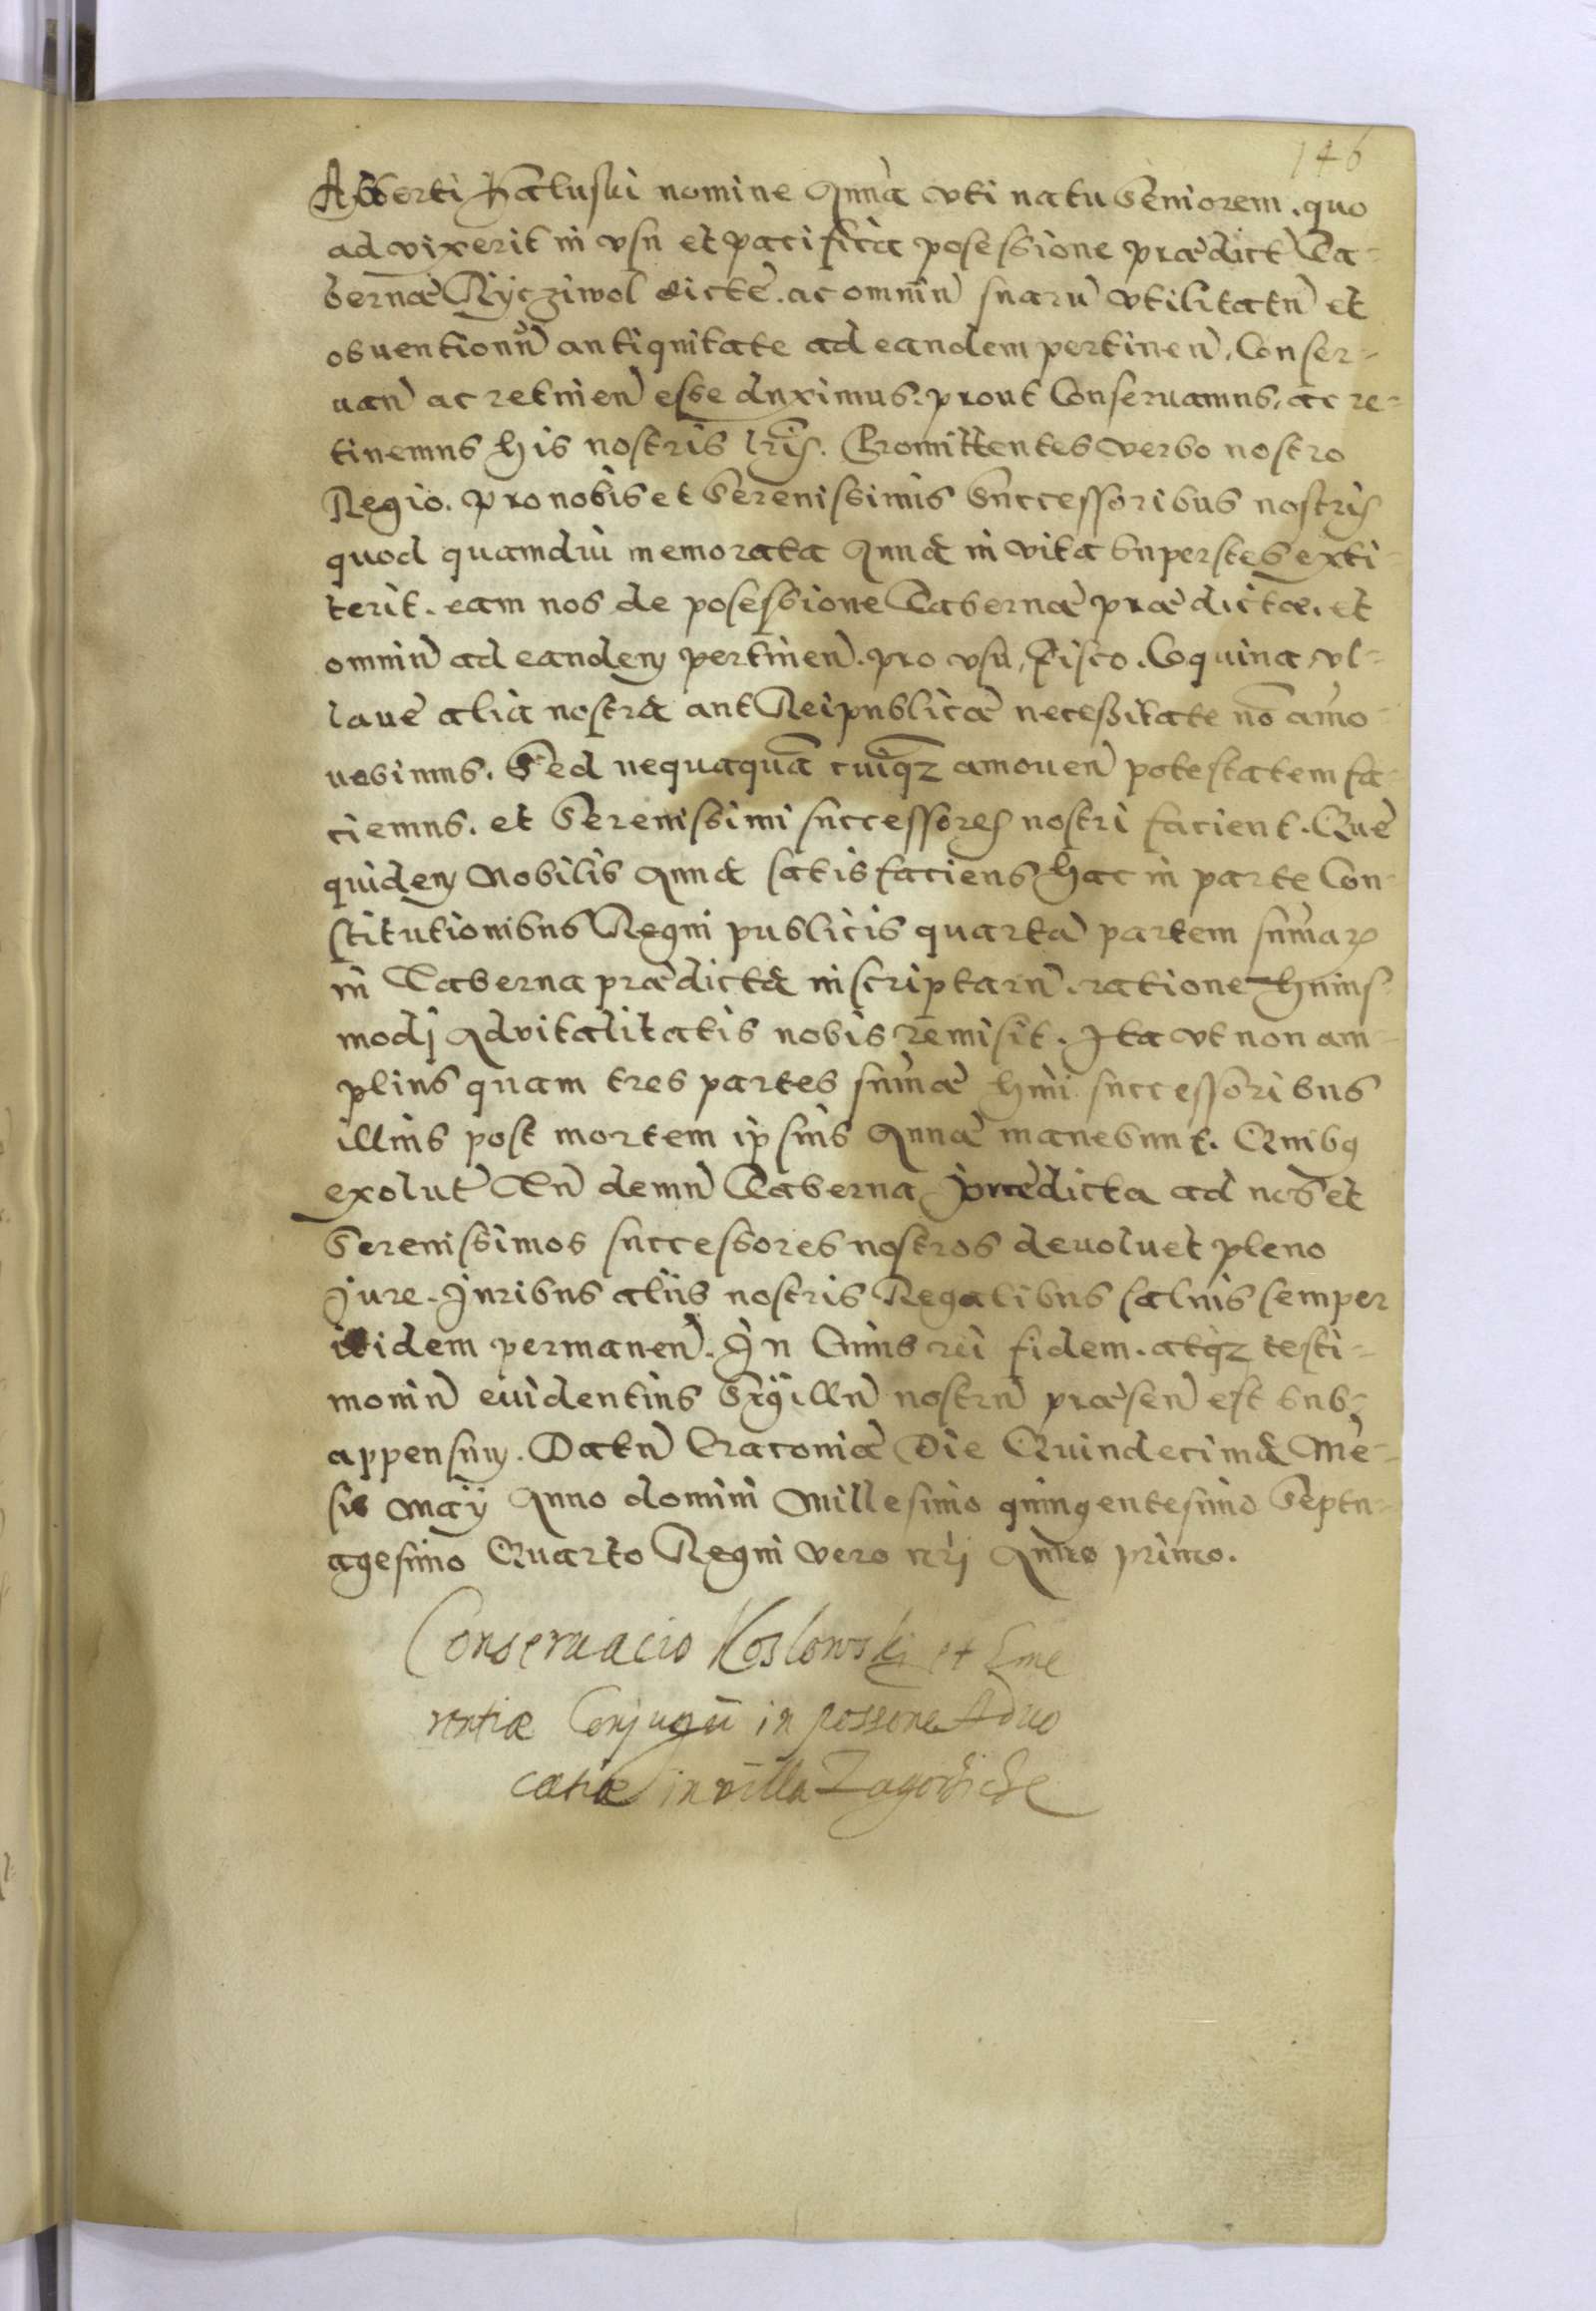 146
Alberti Kaluski nomine Anna uti natu Seniorem. quo
ad vixerit in usu et pacifica posessione prædict Ta-
bernæ Ryczÿwol dictæ. ac omniũ suarũ utilitatũ et
obuentionũ antiquitate ad eandem pertinen̄. Conser-
uan̄ ac retinen̄ esse duximus. prout Conseruamus, ac re-
tinemus his nostris lrīs. Promittentes verbo nostro
Regio. pro nobis et Serenissimis Successoribus nostris
quod quamdiu memorata Anna in vita Superstes exti-
terit. eam nos de posessione Tabernæ prædictæ. et
omniũ ad eandem pertinen̄. pro usu, Fisco. Coquina vl-
laue alia nostra aut Reipublicæ necessitate nō amo-
uebimus. Sed nequaquā cuiqz amouen̄ potestatem fa-
ciemus. et Serenissimi successores nostri facient. Quæ
quidem Nobilis Anna satisfaciens hac in parte Con-
stitutionibus Regni publicis quartā partem sum̄arū
in Taberna prædicta inscriptarũ. ratione huius-
modj Aduitalitatis nobis remisit. Ita vt non am-
plius quam tres partes sum̄æ hm̄i successoribus
illius post mortem ipsius Annæ manebunt. Quibq
exolut̄ Tũ demũ Taberna prædicta ad nos et
Serenissimos successores nostros deuoluet pleno
Jure. Juribus alijs nostris Regalibus saluis semper
ibidem permanen̄. In Cuius rei fidem. atqz testi-
moniũ euidentius Sigillũ nostrũ præsen̄ est sub-
appensum. Datũ Cracouiæ Die Quindecima Mē-
sis Maÿ Anno domini Millesimo quingentesimo Septu-
agesimo Quarto Regni vero nrj Anno primo.
Conseruacio Koslowski et Eme
rentiæ Conjugū in possone Aduo
catiæ in villa Zagoście